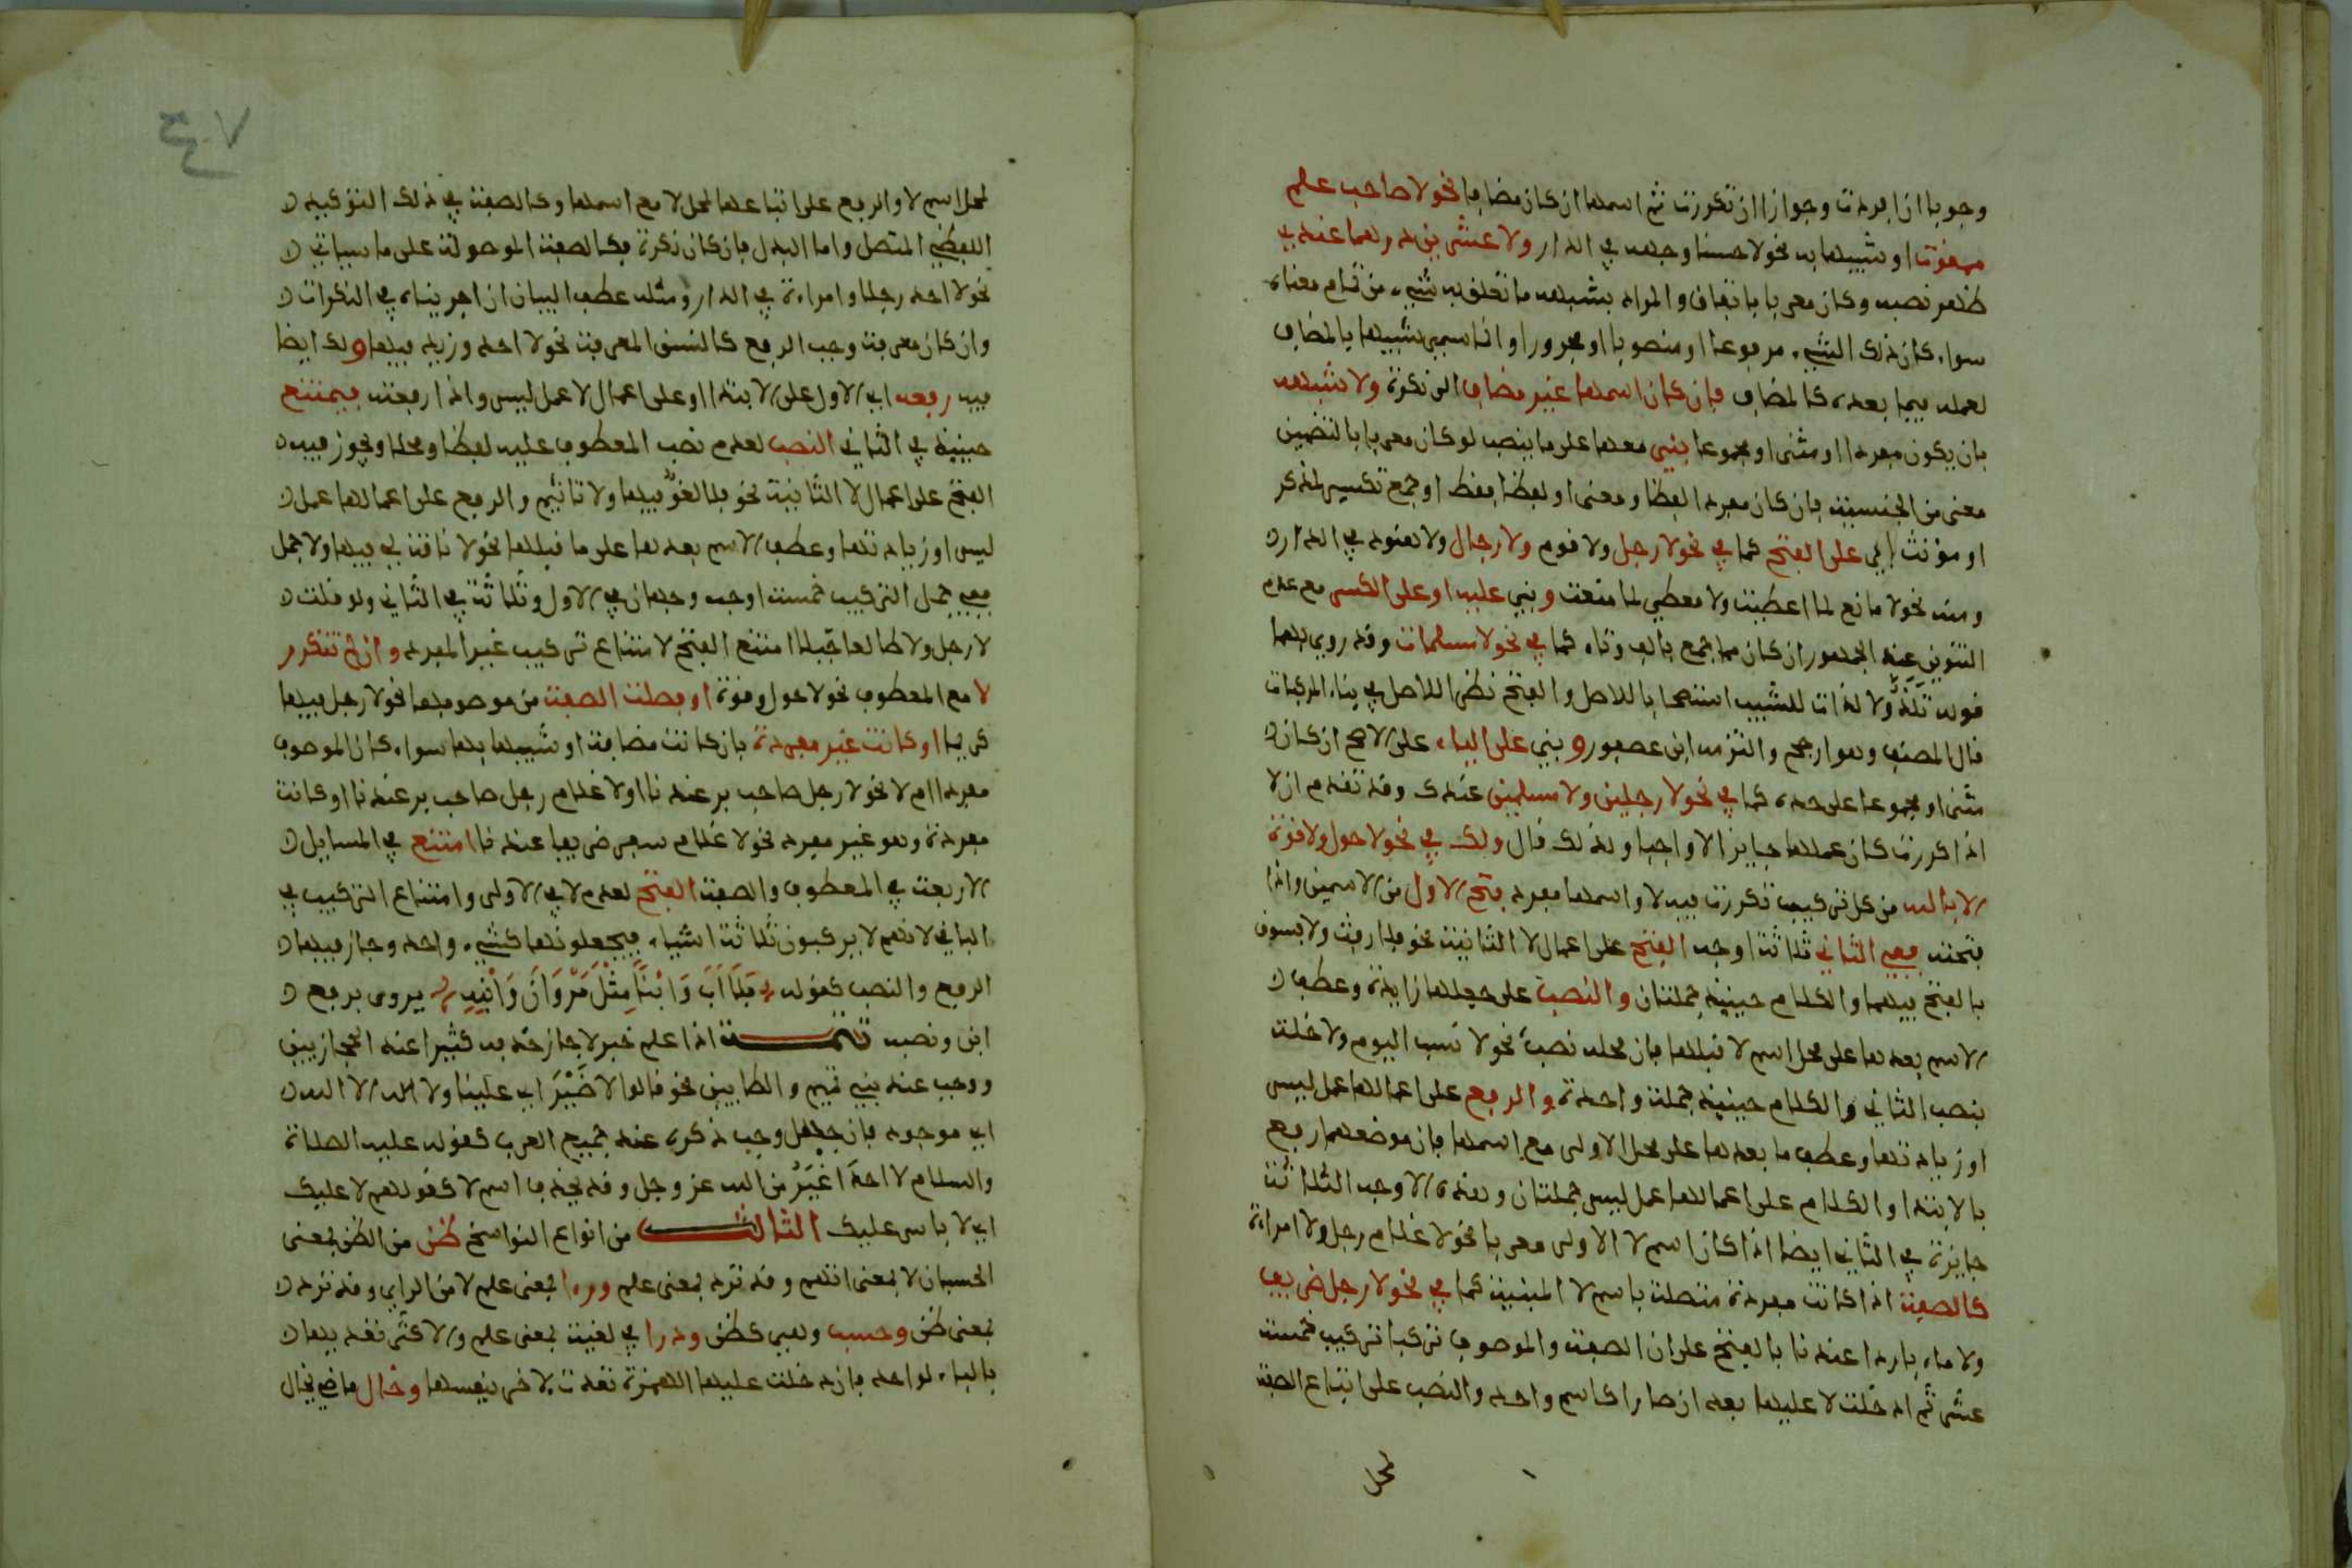 وجوبا ان افردت وجوازا ان تكررت ثم اسمها ان كان مضافا نحو لا صاحب علم
ممقوت او شبيها به نحو لا حسنا وجهه في الدار ولا عشرين درهما عندي
ظهر نصبه وكان معربا باتفاق والمراد بشبهه ما تعلق به شيء من تمام معناه
سواء كان ذلك الشيء مرفوعا او منصوبا او مجرورا وانما سمي شبيها بالمضاف
لعمله فيما بعده كالمضاف فإن كان اسمها غير مضاف الى نكرة ولا شبهه
بان يكون مفردا او مثنى او مجموعا بني معها على ما ينصب لو كان معربا بالتضمين
معنى من الجنسية فان كان مفردا لفظا ومعنى او لفظا فقط او جمع تكسير لمذكر
او مؤنث بني على الفتح كما في نحو لا رجل ولا قوم ولا رجال ولا هنود في الدار
ومنه نحو لا مانع لما اعطيت ولا معطي لما منعت وبني عليه او على الكسر مع عدم
التنوين عند الجمهور ان كان مما جمع بالف وتاء كما في نحو لا مسلمات وقد روي بهما
قوله تلذ ولا لذات للشيب استصحابا للاصل والفتح نظرا للاصل في بناء المركبات
قال المصنف وهو ارجح والتزمه ابن عصفور وبني على الياء على الاصح ان كان
مثنى او مجموعا على حده كما في نحو لا رجلين ولا مسلمين عندك وقد تقدم ان لا
اذا كررت كان عملها جايزا لا واجبا ولذلك قال ولك في نحو لا حول ولا قوة
الا بالله من كل تركيب تكررت فيه لا واسمها مفرد فتح الاول من الاسمين واذا
فتحته ففي الثاني ثلاثة اوجه الفتح على اعمال لا الثانية نحو فلا رفث ولا فسوق
بالفتح فيهما والكلام حينئذ جملتان والنصب على جعلها زايدة وعطف
الاسم بعدها على محل اسم لا قبلها فان محله نصب نحو لا نسب اليوم ولا خلة
بنصب الثاني والكلام حينئذ جملة واحدة والرفع على اعمالها عمل ليس
او زيادتها وعطف ما بعدها على محل الاولى مع اسمها فان موضعهما رفع
بالابتدا والكلام على اعمالها عمل ليس جملتان وهذه الاوجه الثلاثة
جايزة في الثاني ايضا اذا كان اسم لا الاولى معربا نحو لا غلام رجل ولا امراة
كالصفة اذا كانت مفردة متصلة باسم لا المبنية كما في نحو لا رجل ظريف
ولا ماء باردا عندنا بالفتح على ان الصفة والموصوف تركبا تركيب خمسة
عشر ثم ادخلت لا عليها بعد ان صارا كاسم واحد والنصب على اتباع الصفة
لمحل
لمحل اسم لا والرفع على اتباعها لمحل لا مع اسمها وكالصفة في ذلك التوكيد
اللفظي المتصل واما البدل فان كان نكرة فكالصفة الموصولة على ما سياتي
نحو لا احد رجلا وامراة في الدار ومثله عطف البيان ان اجريناه في النكرات
وان كان معرفة وجب الرفع كالنسق المعرفة نحو لا احد وزيد فيها ولك ايضا
فيه رفعه اي الاول على الابتدا او على اعمال لا عمل ليس واذا رفعته فيمتنع
حينئذ في الثاني النصب لعدم نصب المعطوف عليه لفظا ومحلا ويجوز فيه
الفتح على اعمال لا الثانية نحو فلا لغو فيها ولا تاثيم والرفع على اعمالها عمل
ليس او زيادتها وعطف الاسم بعدها على ما قبلها نحو لا ناقة لي فيها ولا جمل
ففي جمل التركيب خمسة اوجه وجهان في الاول وثلاثة في الثاني ولو قلت
لا رجل ولا طالعا جبلا امتنع الفتح لامتناع تركيب غير المفرد وان لم تتكرر
لا مع المعطوف نحو لا حول وقوة او فصلت الصفة من موصوفها نحو لا رجل فيها
ظريفا او كانت غير مفردة بان كانت مضافة او شبيها بها سواء كان الموصوف
مفردا ام لا نحو لا رجل صاحب بر عندنا او لا غلام رجل صاحب بر عندنا او كانت
مفردة وهو غير مفرد نحو لا غلام سفر ظريفا عندنا امتنع في المسايل
الاربعة في المعطوف والصفة الفتح لعدم لا في الاولى وامتناع التركيب في
الباقي لانهم لا يركبون ثلاثة اشياء فيجعلونها كشيء واحد وجاز فيها
الرفع والنصب كقوله فَلَا اَبَ وَابْنًا مِثْلَ مَرْوَانَ وَابْنِهِ يروى برفع
ابن ونصبه تتمة اذا علم خبر لا جاز حذفه كثيرا عند الحجازيين
ووجب عند بني تميم والطايين نحو قالوا لا ضَيْرَ اي علينا ولا اله الا الله
اي موجود فان جهل وجب ذكره عند جميع العرب كقوله عليه الصلاة
والسلام لا احدَ اَغْيَرُ من الله عز وجل وقد يحذف اسم لا كقولهم لا عليك
اي لا باس عليك الثالث من انواع النواسخ ظن من الظن بمعنى
الحسبان لا بمعنى اتهم وقد ترد بمعنى علم وراا بمعنى علم لا من الراي وقد ترد
بمعنى ظن وحسب وهي كظن ودرا في لغية بمعنى علم والاكثر تعديها
بالباء لواحد فان دخلت عليها الهمزة تعدت لاخر بنفسها وخال ماضي يخال